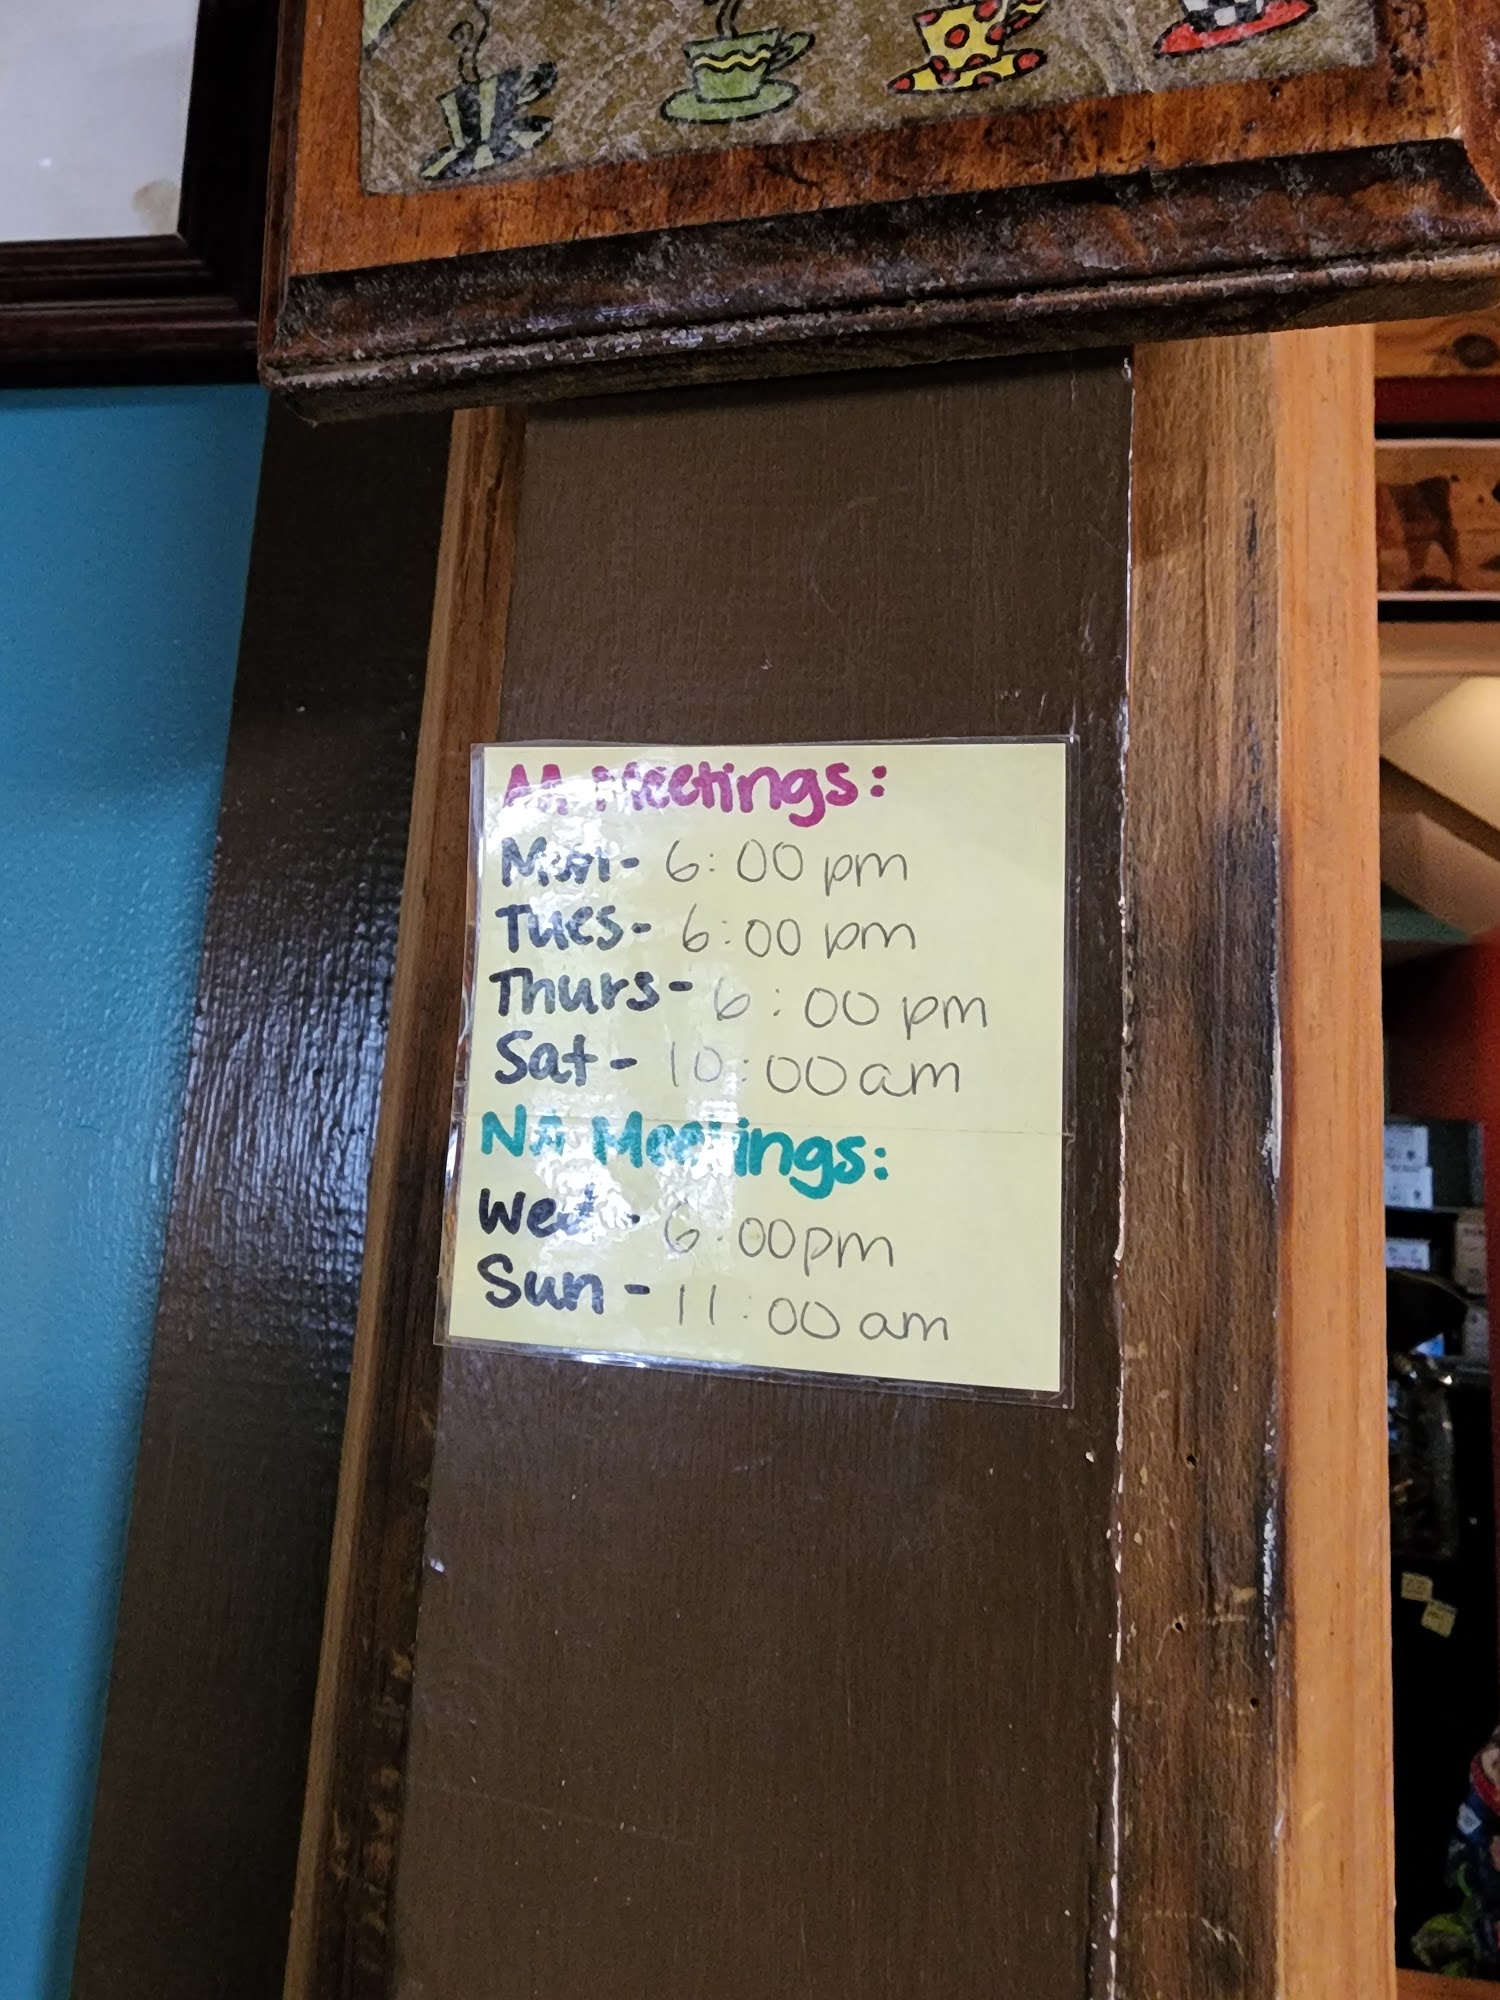 AA Meetings:
Mon- 6:00 pm
Tues- 6:00 pm
Thurs- 6:00 pm
Sat- 10:00 am
NA Meetings:
Wed- 6:00pm
Sun- 11:00 am